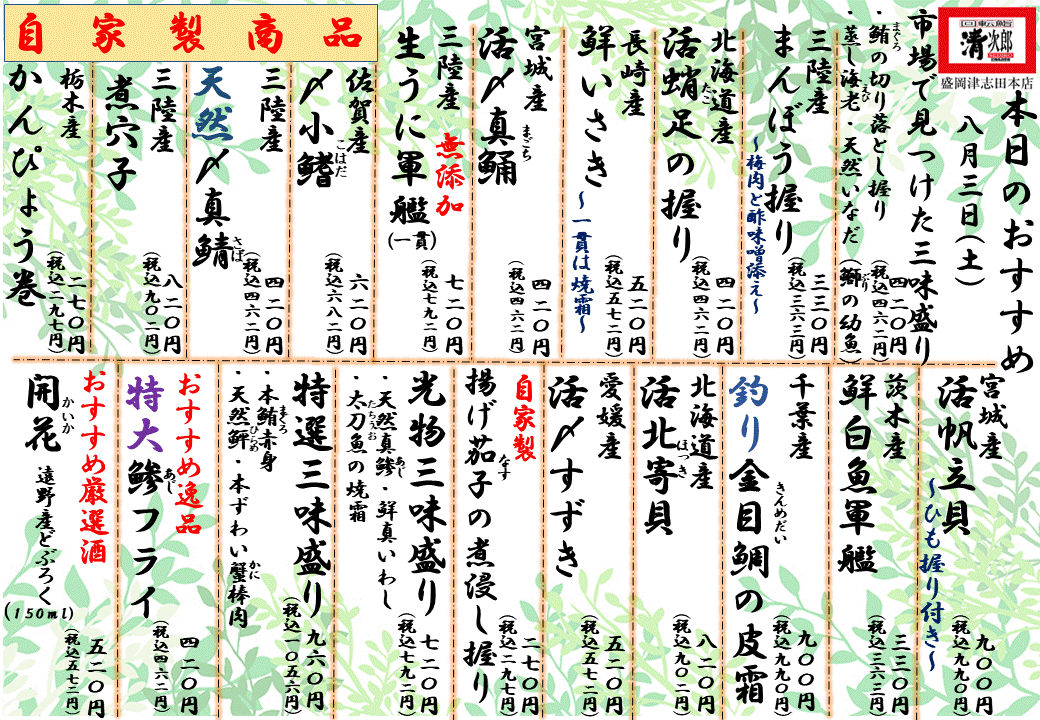 回転鮨
清次郎
盛岡津志田本店
本日のおすすめ
八月三日(土)
市場で見つけた三味盛り
・鮪の切り落とし握り
まぐろ
・蒸し海老・天然いなだ(鰤の幼魚)
えび
ぶり
四二〇円
(税込四六二円)
三陸産
まんぼう握り
～梅肉と酢味噌添え～
三三〇円
(税込三六三円)
北海道産
活蛸足の握り
たこ
四二〇円
(税込四六二円)
長崎産
鮮いさき
～一貫は焼霜～
五二〇円
(税込五七二円)
宮城産
活〆真鯒
まごち
四二〇円
(税込四六二円)
三陸産
無添加
生うに軍艦(一貫)
七二〇円
(税込七九二円)
自家製商品
佐賀産
〆小鰭
こはだ
六二〇円
(税込六八二円)
三陸産
天然〆真鯖
さば
四二〇円
(税込四六二円)
三陸産
煮穴子
八二〇円
(税込九〇二円)
栃木産
かんぴょう巻
二七〇円
(税込二九七円)
宮城産
活帆立貝
～ひも握り付き～
九〇〇円
(税込九九〇円)
茨木産
鮮白魚軍艦
三三〇円
(税込三六三円)
千葉産
釣り金目鯛の皮霜
きんめだい
九〇〇円
(税込九九〇円)
北海道産
活北寄貝
ほっき
八二〇円
(税込九〇二円)
愛媛産
活〆すずき
五二〇円
(税込五七二円)
自家製
揚げ茄子の煮浸し握り
なす
二七〇円
(税込二九七円)
光物三味盛り
・天然真鯵・鮮真いわし
あじ
・太刀魚の焼霜
たちうお
七二〇円
(税込七九二円)
特選三味盛り
・本鮪赤身
まぐろ
・天然鮃・本ずわい蟹棒肉
ひらめ
かに
九六〇円
(税込一〇五六円)
おすすめ逸品
特大鯵フライ
あじ
四二〇円
(税込四六二円)
おすすめ厳選酒
開花
かいか
遠野産どぶろく
(150ml)
五二〇円
(税込五七二円)